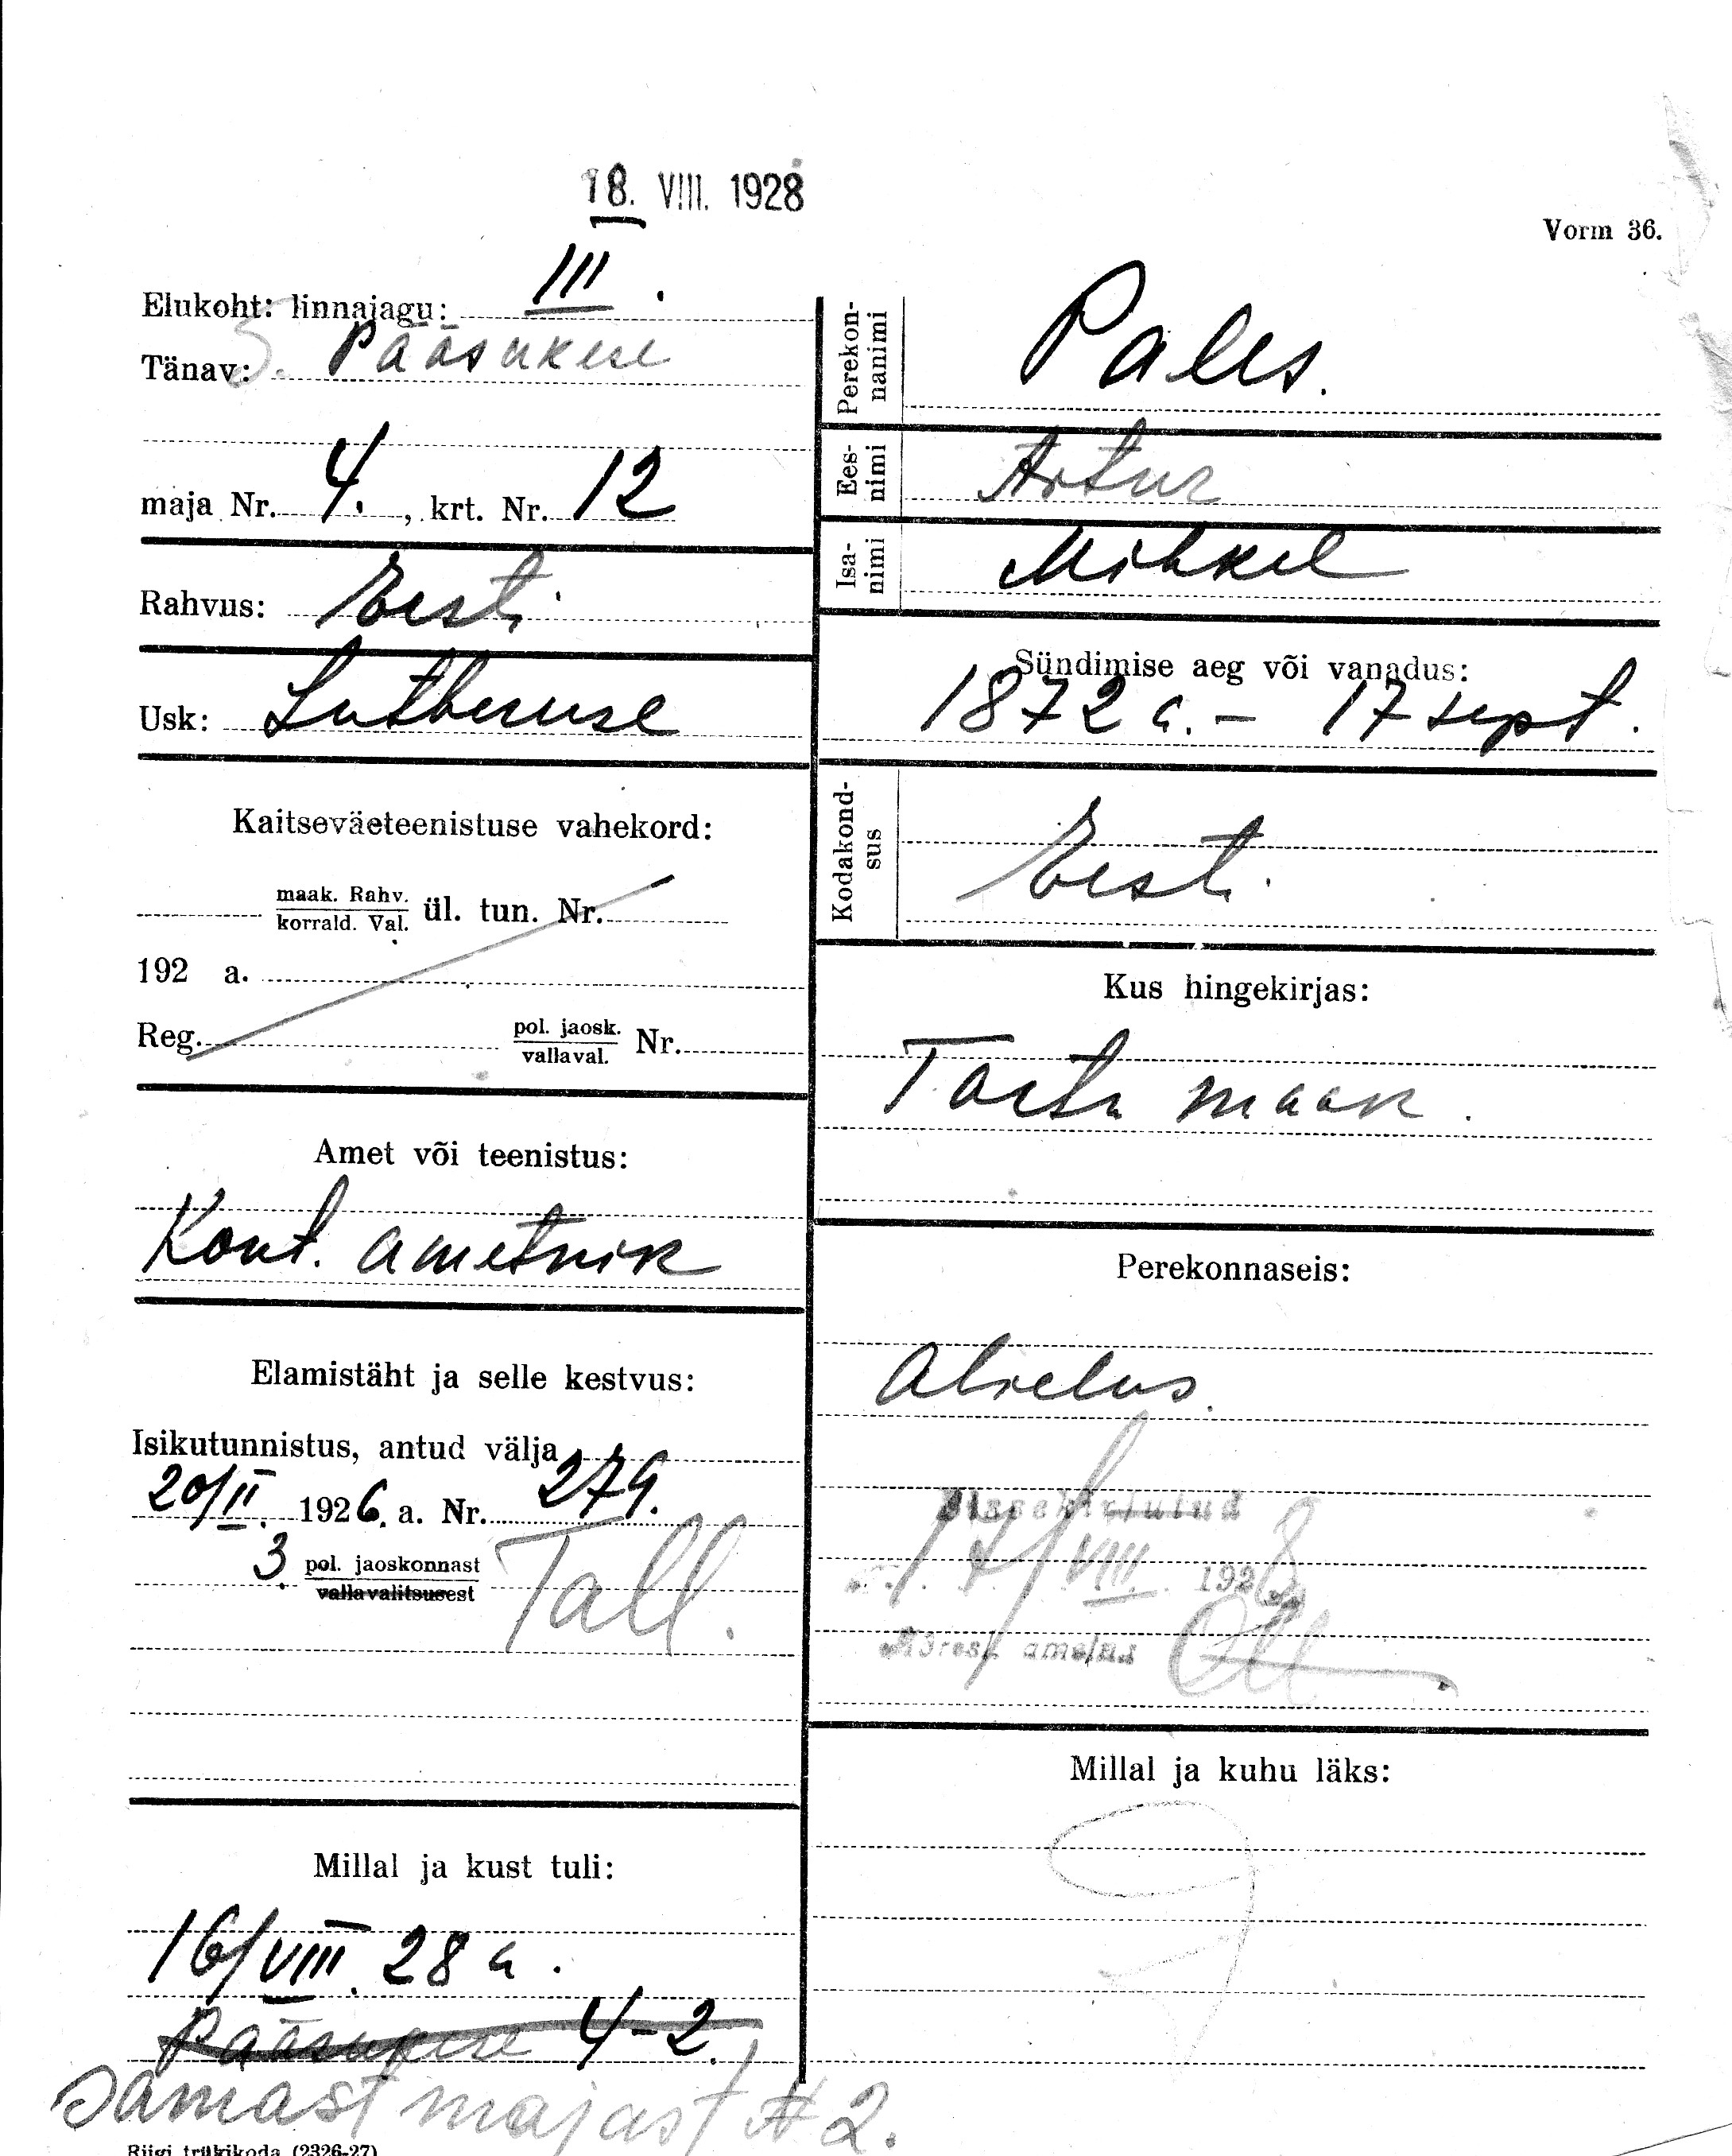 18. VIII. 1928
Vorm 36.
Elukoht: linnajagu: III.
Tänav: Pääsukese
maja Nr. 4., krt. Nr. 12
Rahvus: Eesti
Usk: Lutheruse
Kaitseväeteenistuse vahekord:
maak. Rahv.
korrald. Val. ül. tun. Nr.
192 a.
Reg. pol. jaosk.
vallaval. Nr.
Amet või teenistus:
Kont. ametnik
Elamistäht ja selle kestvus:
Isikutunnistus, antud välja
20/II. 1926. a. Nr. 279.
3. pol. jaoskonnast Tall.
vallavalitsusest
Millal ja kust tuli:
16/VIII. 28 a.
Pääsukese 4-2.
Samast majast N 2.
Riigi trükikoda (2326-27)
Perekon-
nanimi Pales.
Ees-
nimi Artur
Isa-
nimi Mihkel
Sündimise aeg või vanadus:
1872 a. - 17 sept.
Kodakond-
sus Eesti.
Kus hingekirjas:
Tartu maak.
Perekonnaseis:
abielus.
Sissekirjutud
17/VIII. 1928
Adress ametnik
Millal ja kuhu läks: